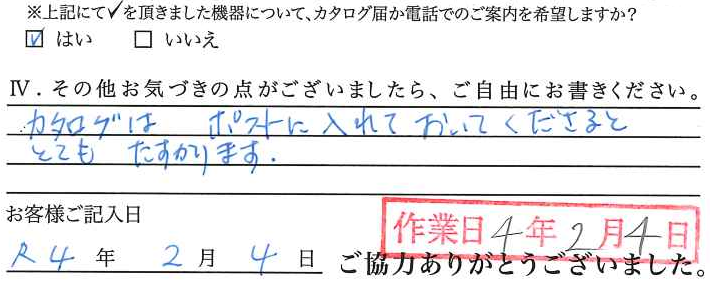 ※上記にて✓を頂きました機器について、カタログ届か電話でのご案内を希望しますか?
☑ はい □ いいえ
Ⅳ．その他お気づきの点がございましたら、ご自由にお書きください。
カタログは ポストに入れておいてくださると
とても たすかります.
お客様ご記入日
作業日4年2月4日
R4年 2月 4日 ご協力ありがとうございました。